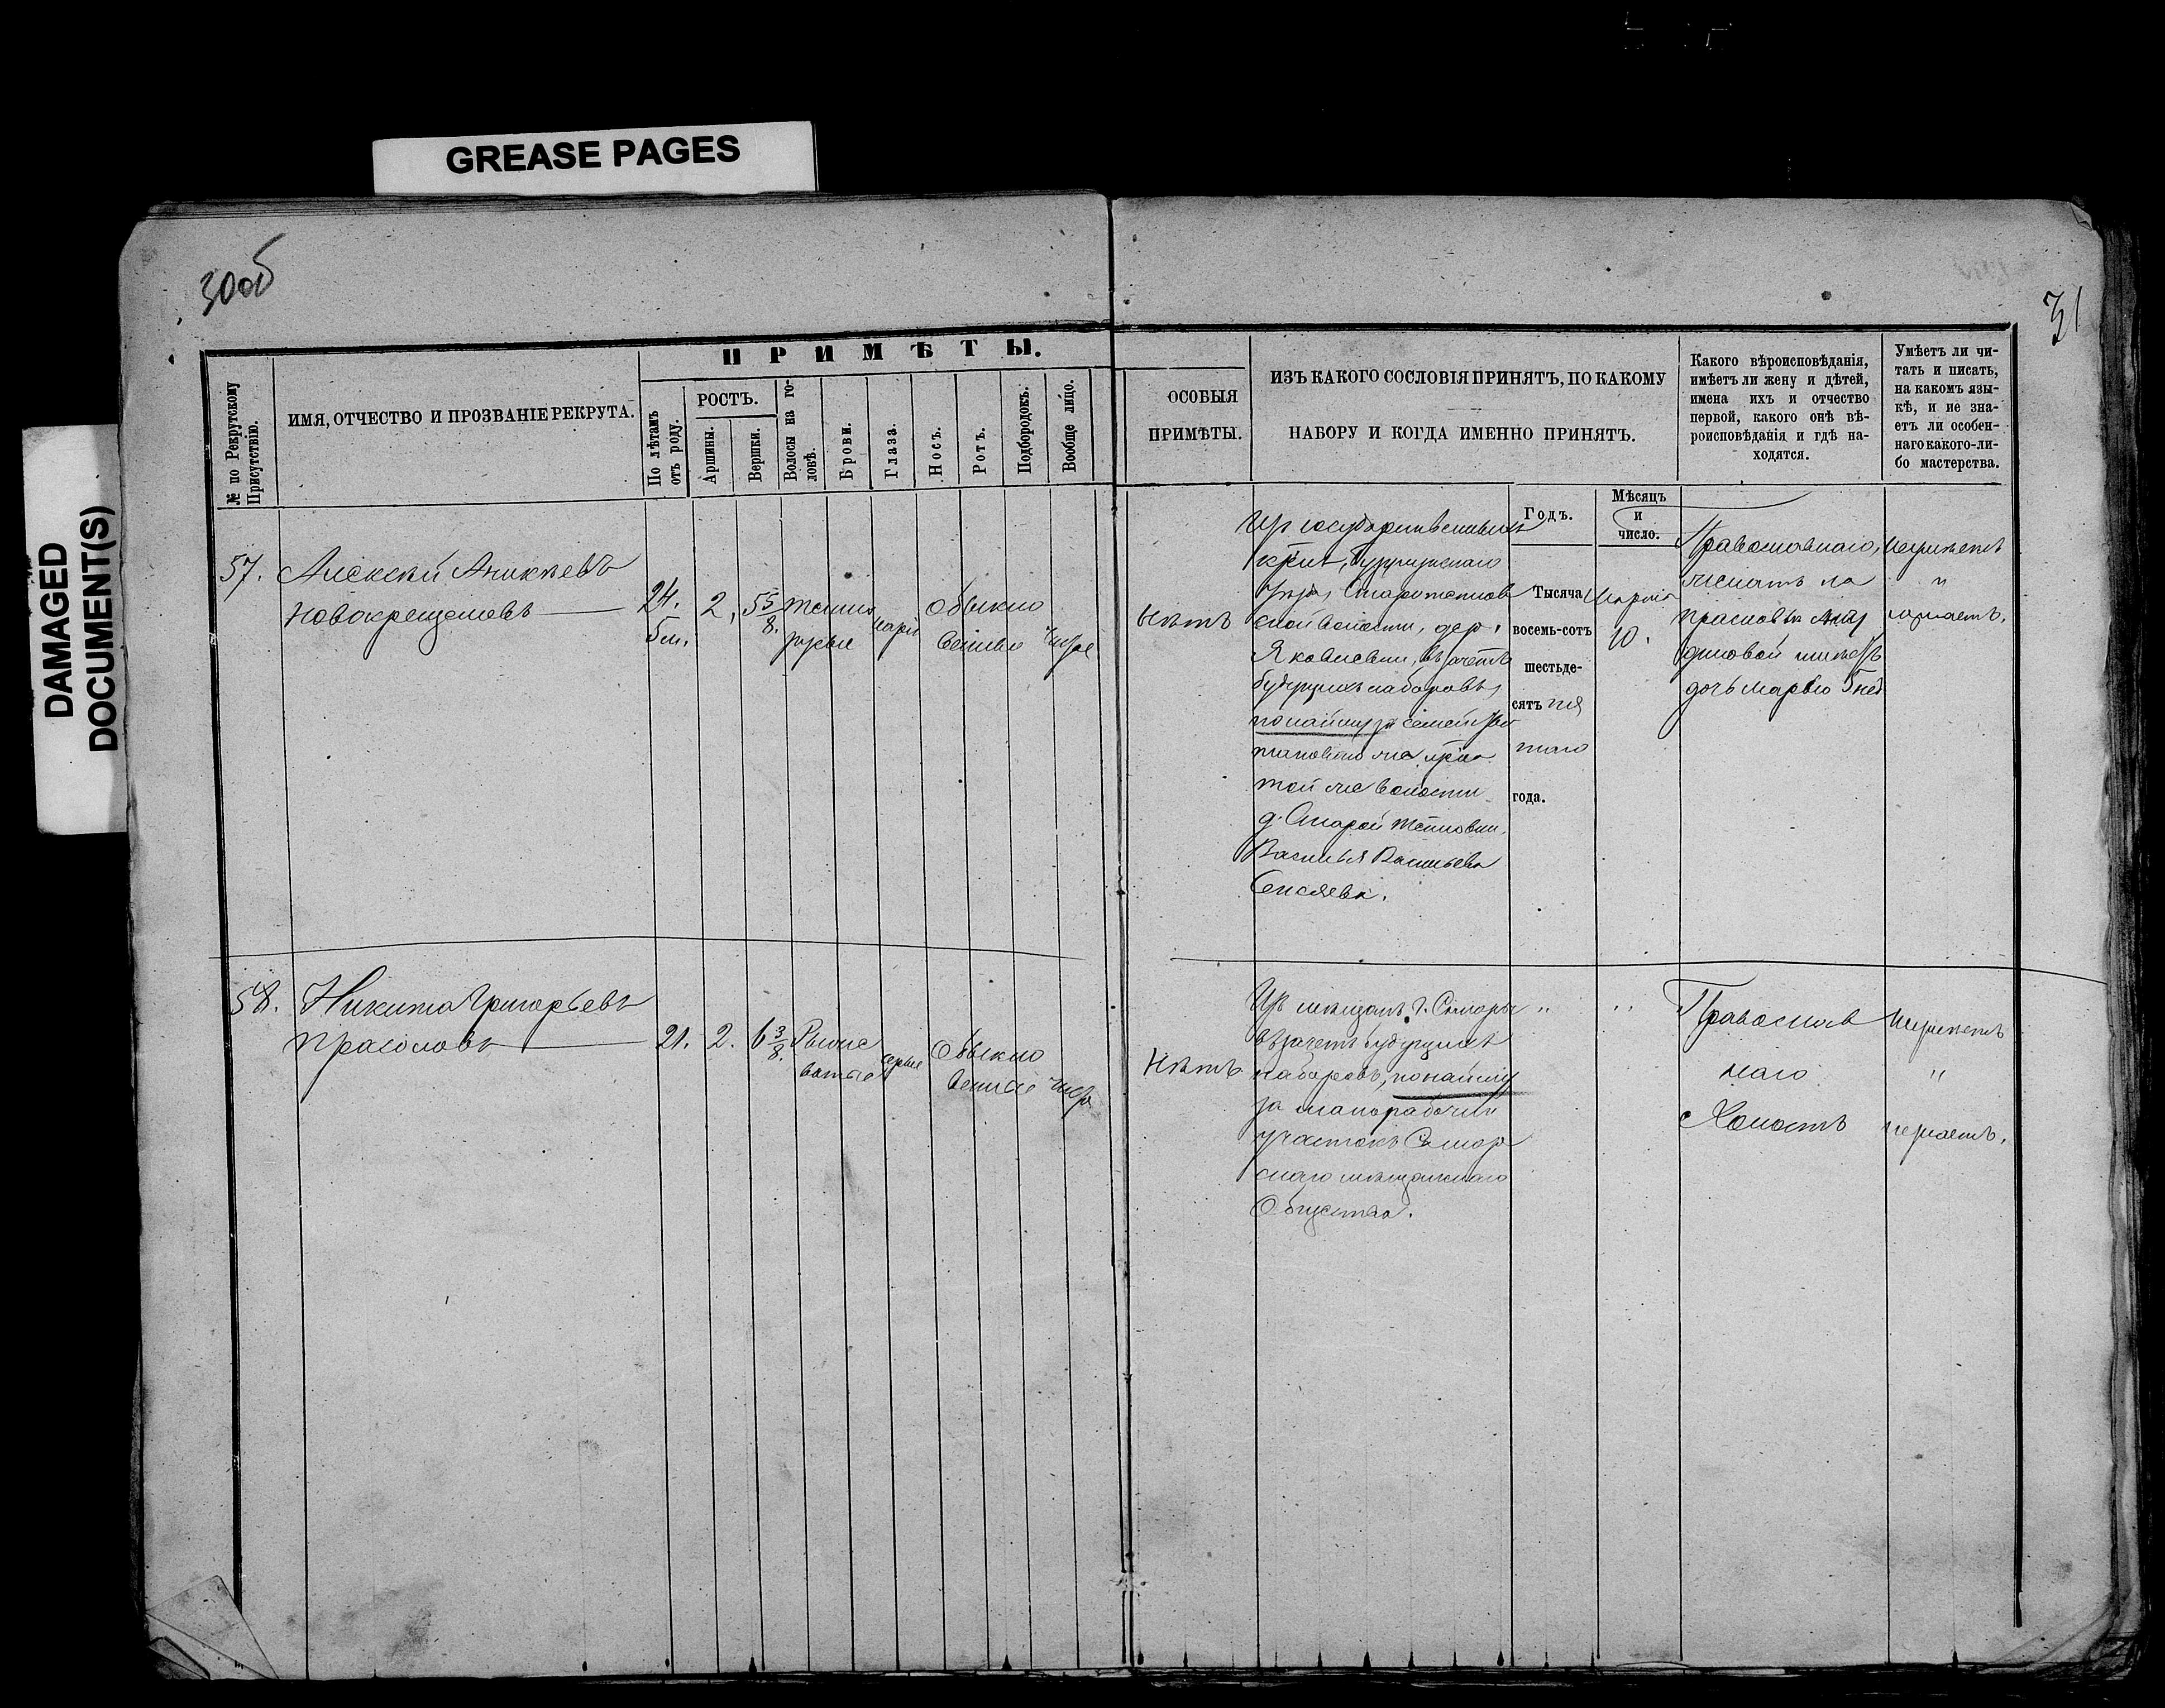 GREASE PAGES
DAMAGED
DOCUMENT(S)
30об
31
№ по Рекрутскому
Присутствію.
ИМЯ, ОТЧЕСТВО И ПРОЗВАНІЕ РЕКРУТА.
ПРИМѢТЫ.
По лѣтамъ
отъ роду.
РОСТЪ.
Аршины.
Вершки.
Волосы на го-
ловѣ.
Брови.
Глаза.
Носъ.
Ротъ.
Подбородокъ.
Вообще лицо.
ОСОБЫЯ
ПРИМѢТЫ.
ИЗЪ КАКОГО СОСЛОВІЯ ПРИНЯТЪ, ПО КАКОМУ
НАБОРУ И КОГДА ИМЕННО ПРИНЯТЪ.
Годъ.
Мѣсяцъ
и
число.
Какого вѣроисповѣданія,
имѣетъ ли жену и дѣтей,
имена ихъ и отчество
первой, какого онѣ вѣ-
роисповѣданія и гдѣ на-
ходятся.
Умѣетъ ли чи-
тать и писать,
на какомъ язы-
кѣ, и не зна-
етъ ли особен-
наго какого-ли-
бо мастерства.
57.
Алексѣй Аникѣевъ
Новокрещеновъ
24.
5 м.
2.
5 5/8.
темно
русые
каріе
Обыкно
венные
чистое
Нѣтъ
Изъ государственныхъ
крест., Бузулукскаго
Уѣзда, Старотепловской
волости, дер.
Яковлевки, въ зачетъ
будущихъ наборовъ,
по найму за семейство
той же волости
д. Старой Тепловки,
Василья Васильева
Тысяча
восемь-сотъ
шестьде-
сятъ пя
таго
года.
Марта
10.
Православнаго,
женатъ на
Прасковьѣ
имѣетъ
дочь Марью 5 нед.
Неумѣетъ
и
незнаетъ.
58.
Никита Григорьевъ
Прасоловъ
21.
2.
6 3/8.
Рыже
ватые
сѣрые
Обыкно
венные
чисто
Нѣтъ
Изъ мѣщанъ г. Самары
въ зачетъ будущихъ
наборовъ, по найму
за малорабочій
участокъ Самар
скаго мѣщанскаго
Общества.
"
"
Православ
наго
Холостъ
Неумѣетъ
"
незнаетъ.